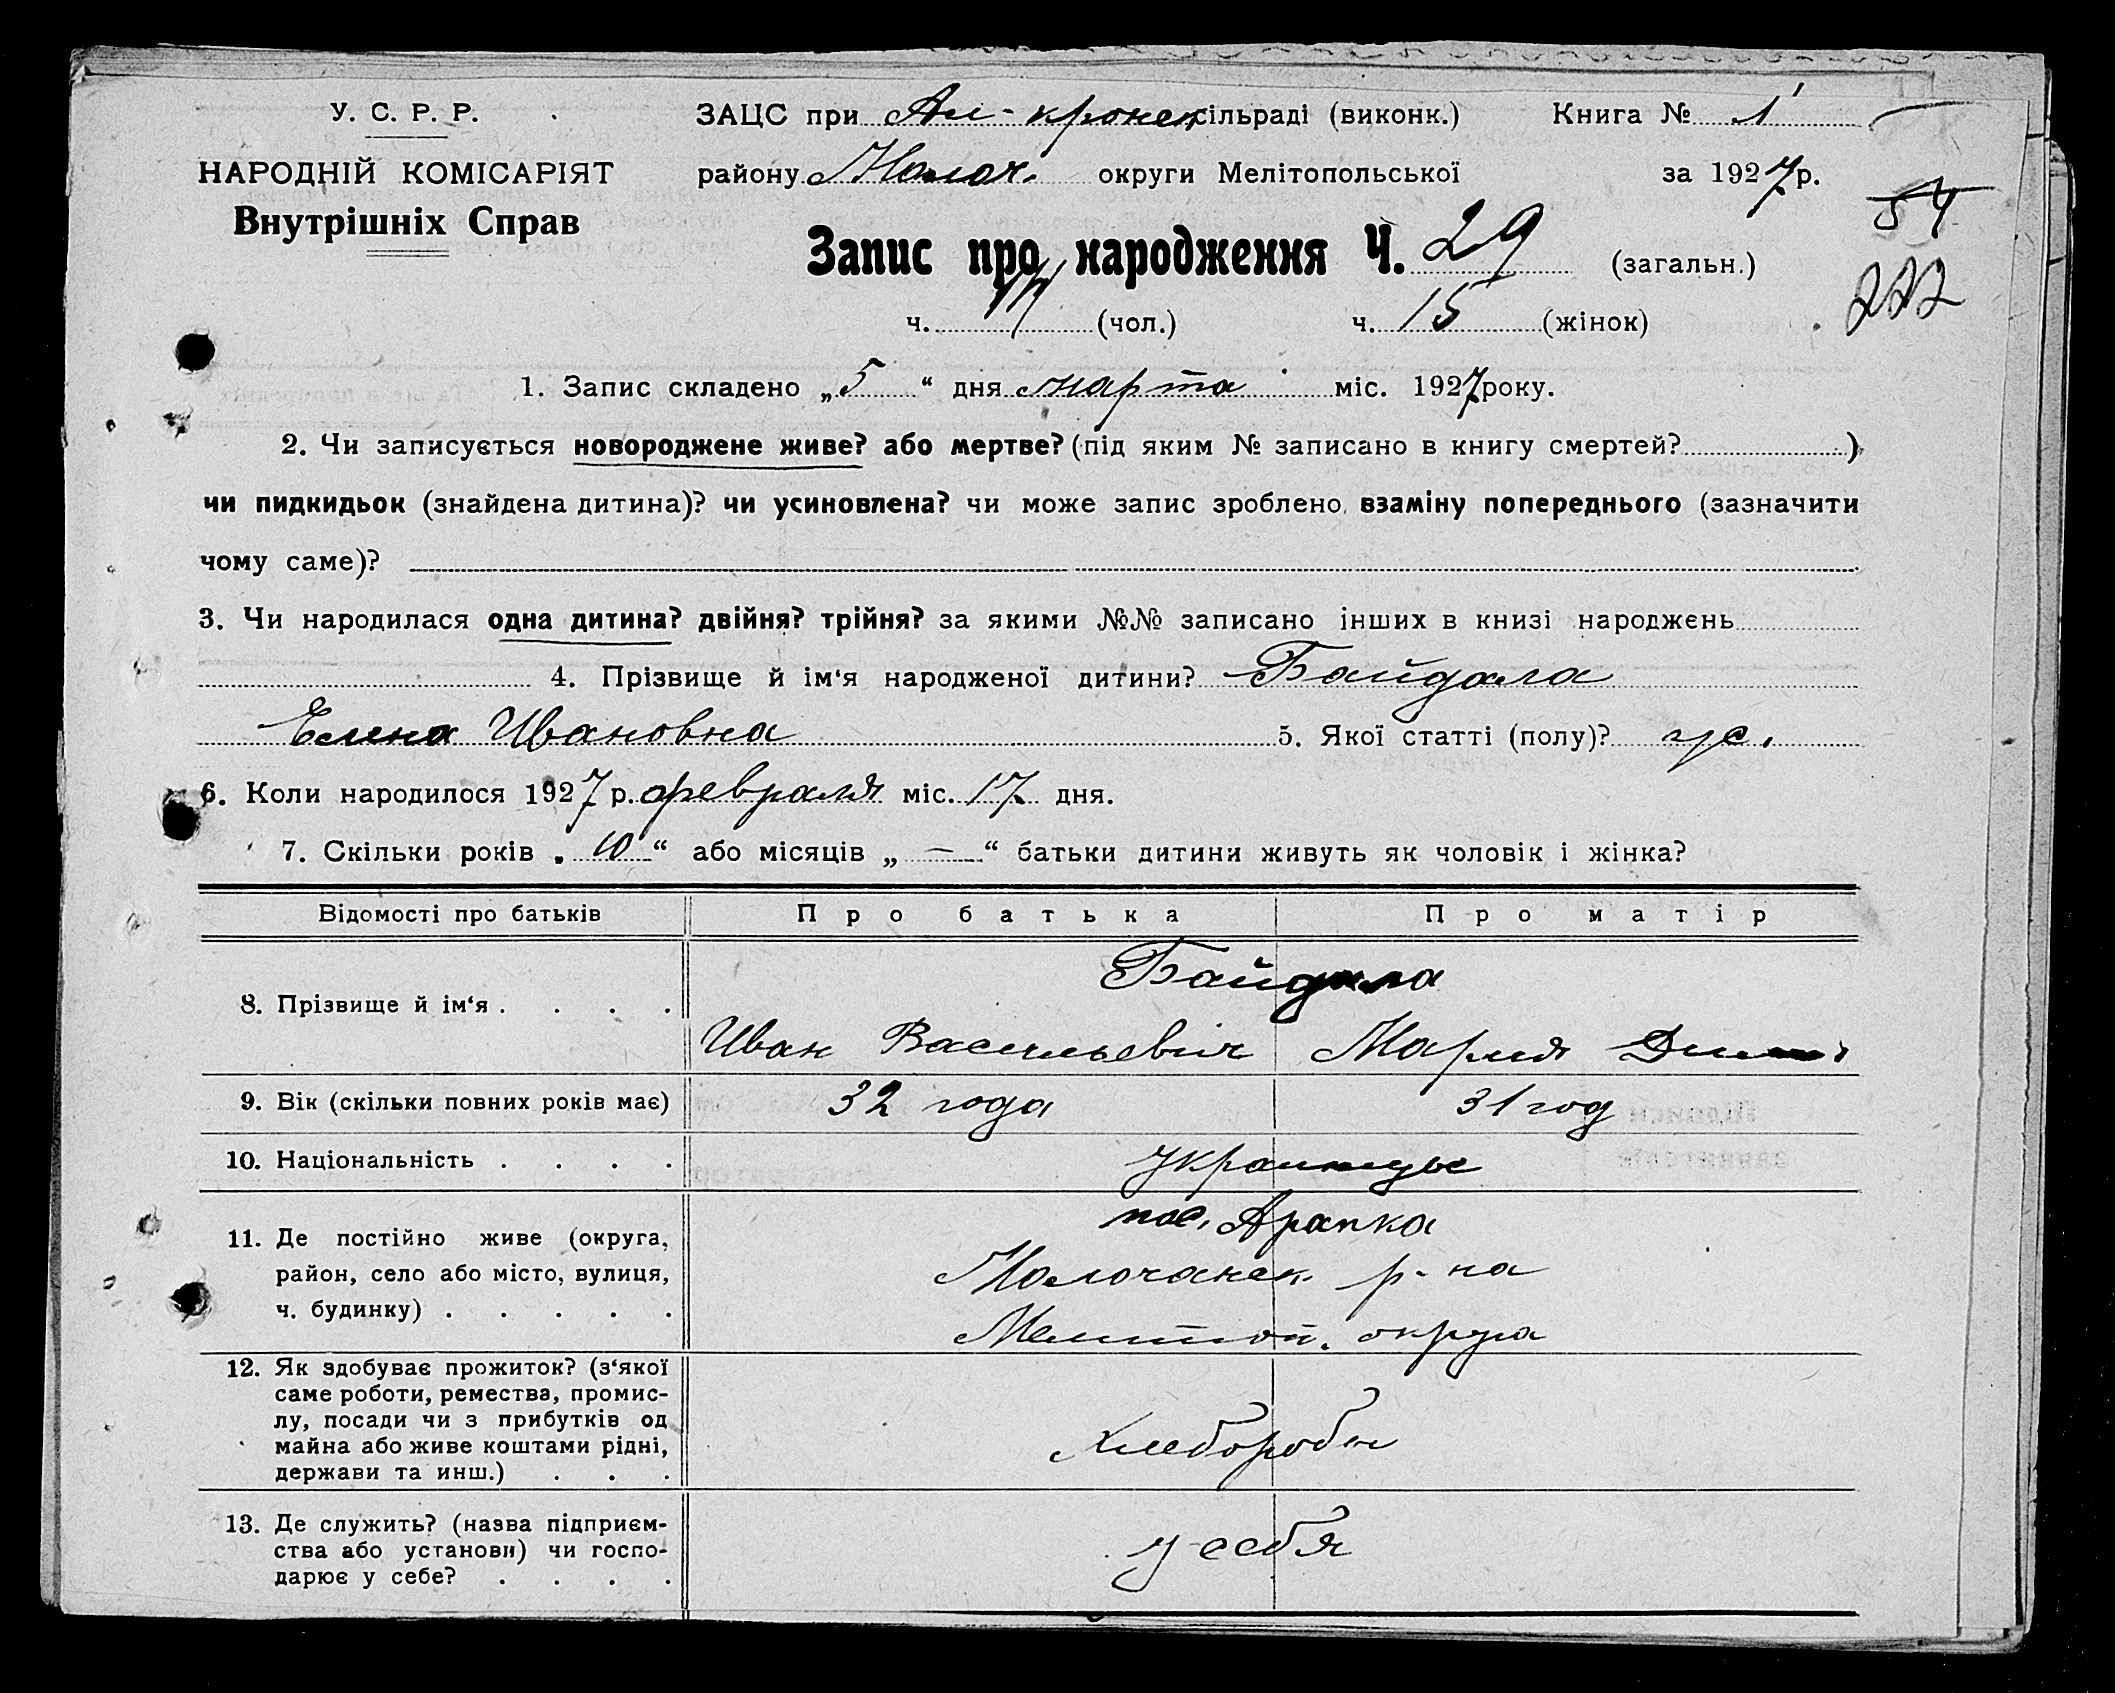 У. С. Р. Р.
НАРОДНІЙ КОМІСАРІЯТ
Внутрішніх Справ
ЗАЦС при Ал-кронск сільраді (виконк.) Книга № 1
району Молоч. округи Мелітопольської за 1927 р.
54
Запис про народження Ч. 29 (загальн.)
222
ч. 14 (чол.) ч. 15 (жінок)
1. Запис складено „ 5 “ дня марта міс. 1927 року.
2. Чи записується новороджене живе? або мертве? (під яким № записано в книгу смертей? )
чи пидкидьок (знайдена дитина)? чи усиновлена? чи може запис зроблено взаміну попереднього (зазначити
чому саме)?
3. Чи народилася одна дитина? двійня? трійня? за якими №№ записано інших в книзі народжень
4. Прізвище й ім‘я народженої дитини? Байдала
Елена Ивановна 5. Якої статті (полу)? ж.
6. Коли народилося 1927 р. февраля міс. 17 дня.
7. Скільки років „ 10 “ або місяців „ — “ батьки дитини живуть як чоловік і жінка?
Відомості про батьків Про батька Про матір
8. Прізвище й ім‘я . . . .
Байдала
Иван Васильевич Мария
9. Вік (скільки повних років має) 32 года 31 год
10. Національність . . . . украинцы
11. Де постійно живе (округа,
район, село або місто, вулиця,
ч. будинку) . . . . .
пос. Арапка
Молочанск. р-на
Мелитоп. округа
12. Як здобуває прожиток? (з‘якої
саме роботи, ремества, промис-
лу, посади чи з прибутків од
майна або живе коштами рідні,
держави та инш.) . . .
хлеборобы
13. Де служить? (назва підприєм-
ства або установи) чи госпо-
дарює у себе? . . . .
у себя